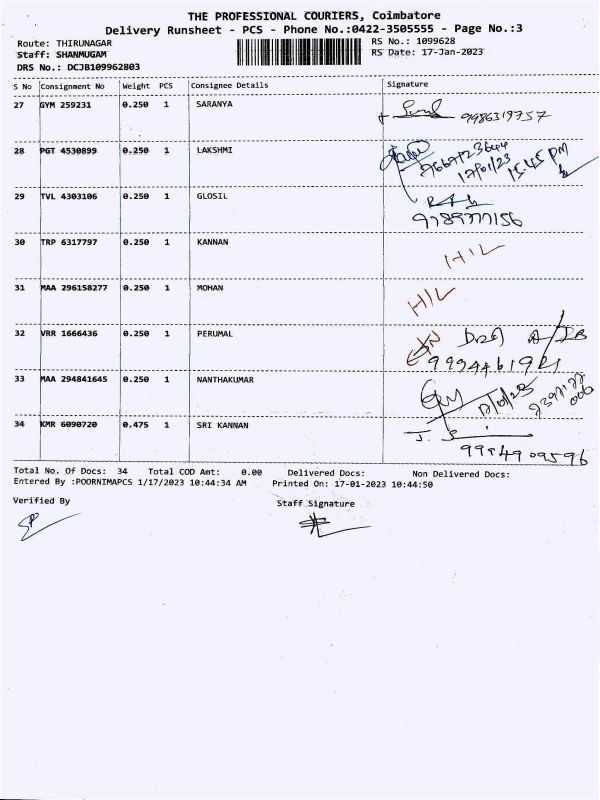 THE PROFESSIONAL COURIERS, Coimbatore
Delivery Runsheet - PCS - Phone No.:0422-3505555 - Page No.:3
Route: THIRUNAGAR
RS No.: 1099628
Staff: SHANMUGAM
RS Date: 17-Jan-2023
DRS No.: DCJB109962803
S No Consignment No Weight PCS Consignee Details Signature
27 GYM 259231 0.250 1 SARANYA
28 PGT 4530899 0.250 1 LAKSHMI
17/01/23 15:45 PM
29 TVL 4303106 0.250 1 GLOSIL
9789777156
30 TRP 6317797 0.250 1 KANNAN
H/L
31 MAA 296158277 0.250 1 MOHAN
H/L
32 VRR 1666436 0.250 1 PERUMAL
33 MAA 294841645 0.250 1 NANTHAKUMAR
34 KMR 6090720 0.475 1 SRI KANNAN
Total No. Of Docs: 34 Total COD Amt: 0.00 Delivered Docs: Non Delivered Docs:
Entered By :POORNIMAPCS 1/17/2023 10:44:34 AM Printed On: 17-01-2023 10:44:50
Verified By
Staff Signature